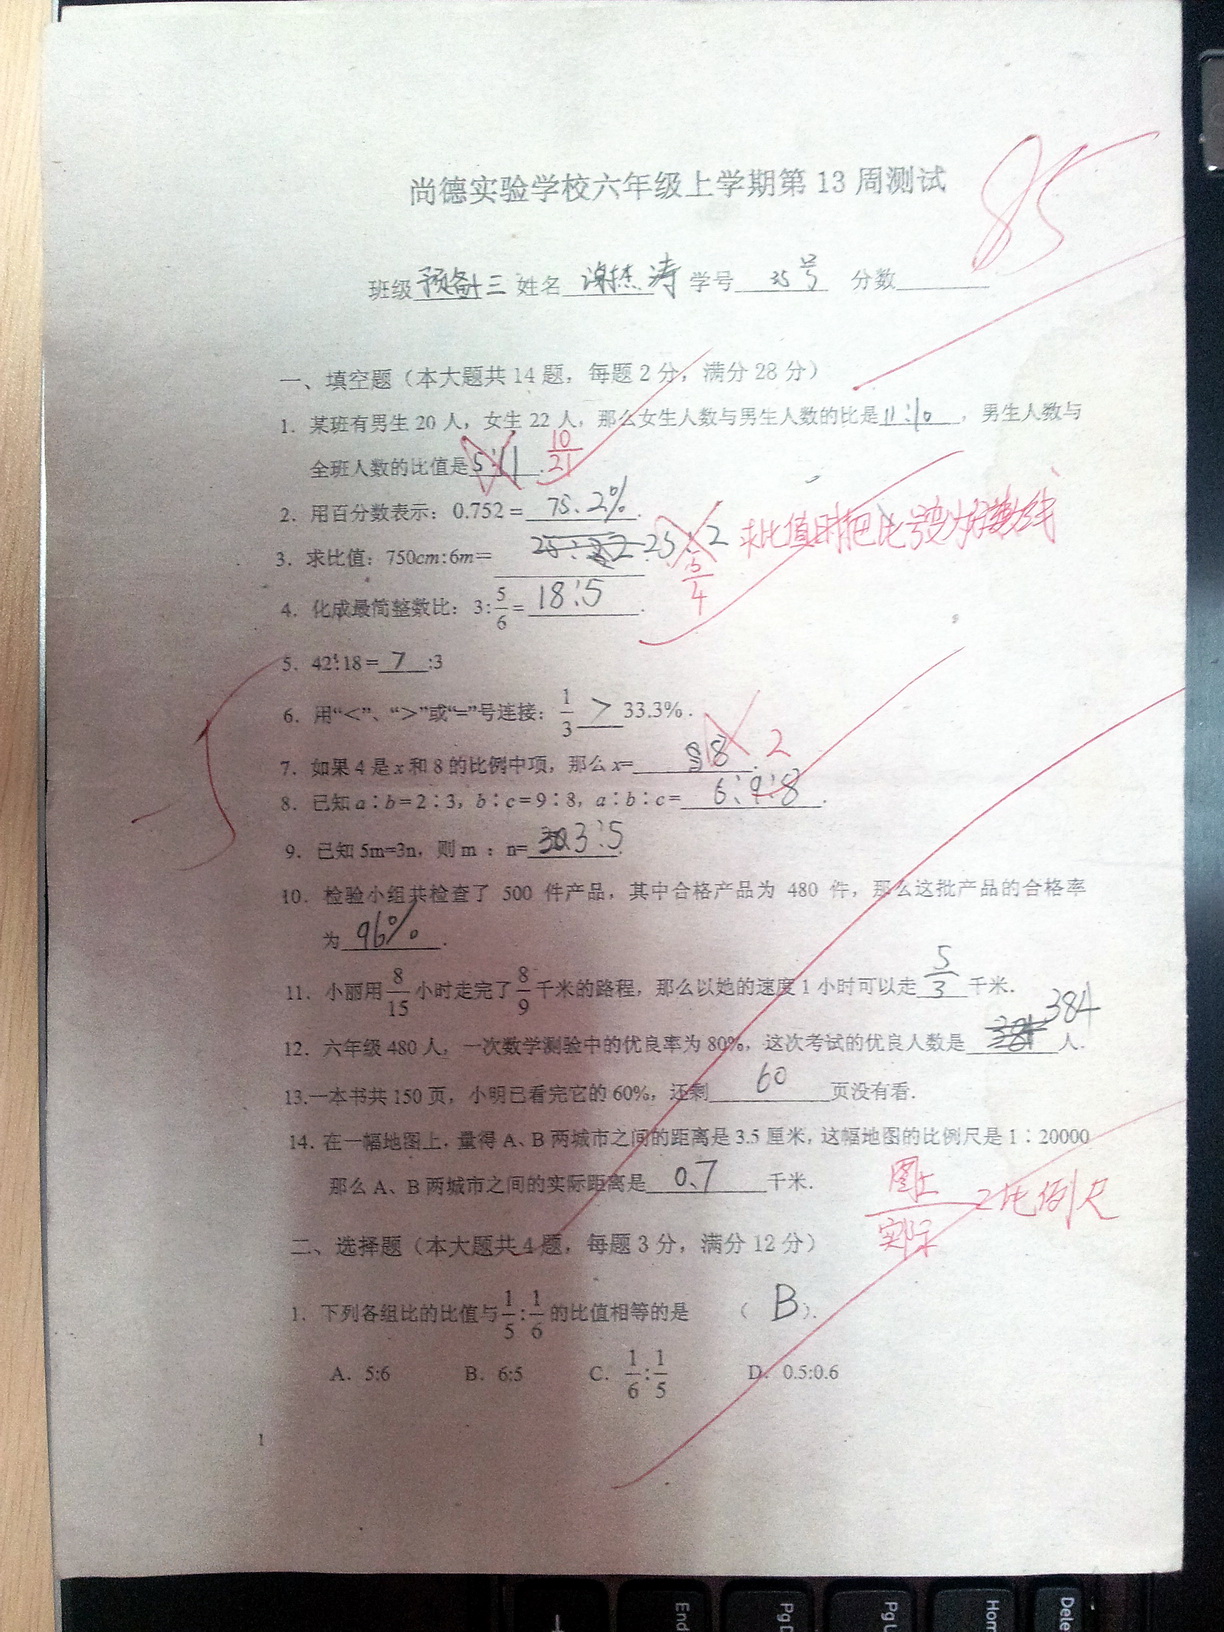 尚德实验学校六年级上学期第 13 周测试
85
班级 预备十三 姓名 谢杰涛 学号 35号 分数
一、填空题（本大题共 14 题，每题 2 分，满分 28 分）
1. 某班有男生 20 人，女生 22 人，那么女生人数与男生人数的比是 11:10 ，男生人数与
全班人数的比值是 5:11 . 10/21
2. 用百分数表示：0.752 = 75.2% .
3. 求比值：750cm:6m= 25:2 5/4 求比值时把比号变为分数线
4. 化成最简整数比：3:5/6 = 18:5 .
5. 42:18 = 7 :3
6. 用“<”、“>”或“=”号连接：1/3 > 33.3% .
7. 如果 4 是 x 和 8 的比例中项，那么 x= 8 . 2
8. 已知 a∶b = 2∶3，b∶c = 9∶8，a∶b∶c = 6:9:8 .
9. 已知 5m=3n，则 m ：n= 3:5 .
10. 检验小组共检查了 500 件产品，其中合格产品为 480 件，那么这批产品的合格率
为 96% .
11. 小丽用 8/15 小时走完了 8/9 千米的路程，那么以她的速度 1 小时可以走 5/3 千米.
12. 六年级 480 人，一次数学测验中的优良率为 80%，这次考试的优良人数是 384 人.
13.一本书共 150 页，小明已看完它的 60%，还剩 60 页没有看.
14. 在一幅地图上，量得 A、B 两城市之间的距离是 3.5 厘米，这幅地图的比例尺是 1∶20000
那么 A、B 两城市之间的实际距离是 0.7 千米.
图上/实际 = 比例尺
二、选择题（本大题共 4 题，每题 3 分，满分 12 分）
1. 下列各组比的比值与 1/5:1/6 的比值相等的是 （ B ）.
A. 5:6 B. 6:5 C. 1/6:1/5 D. 0.5:0.6
1
End
Pg D
Pg U
Hom
Dele